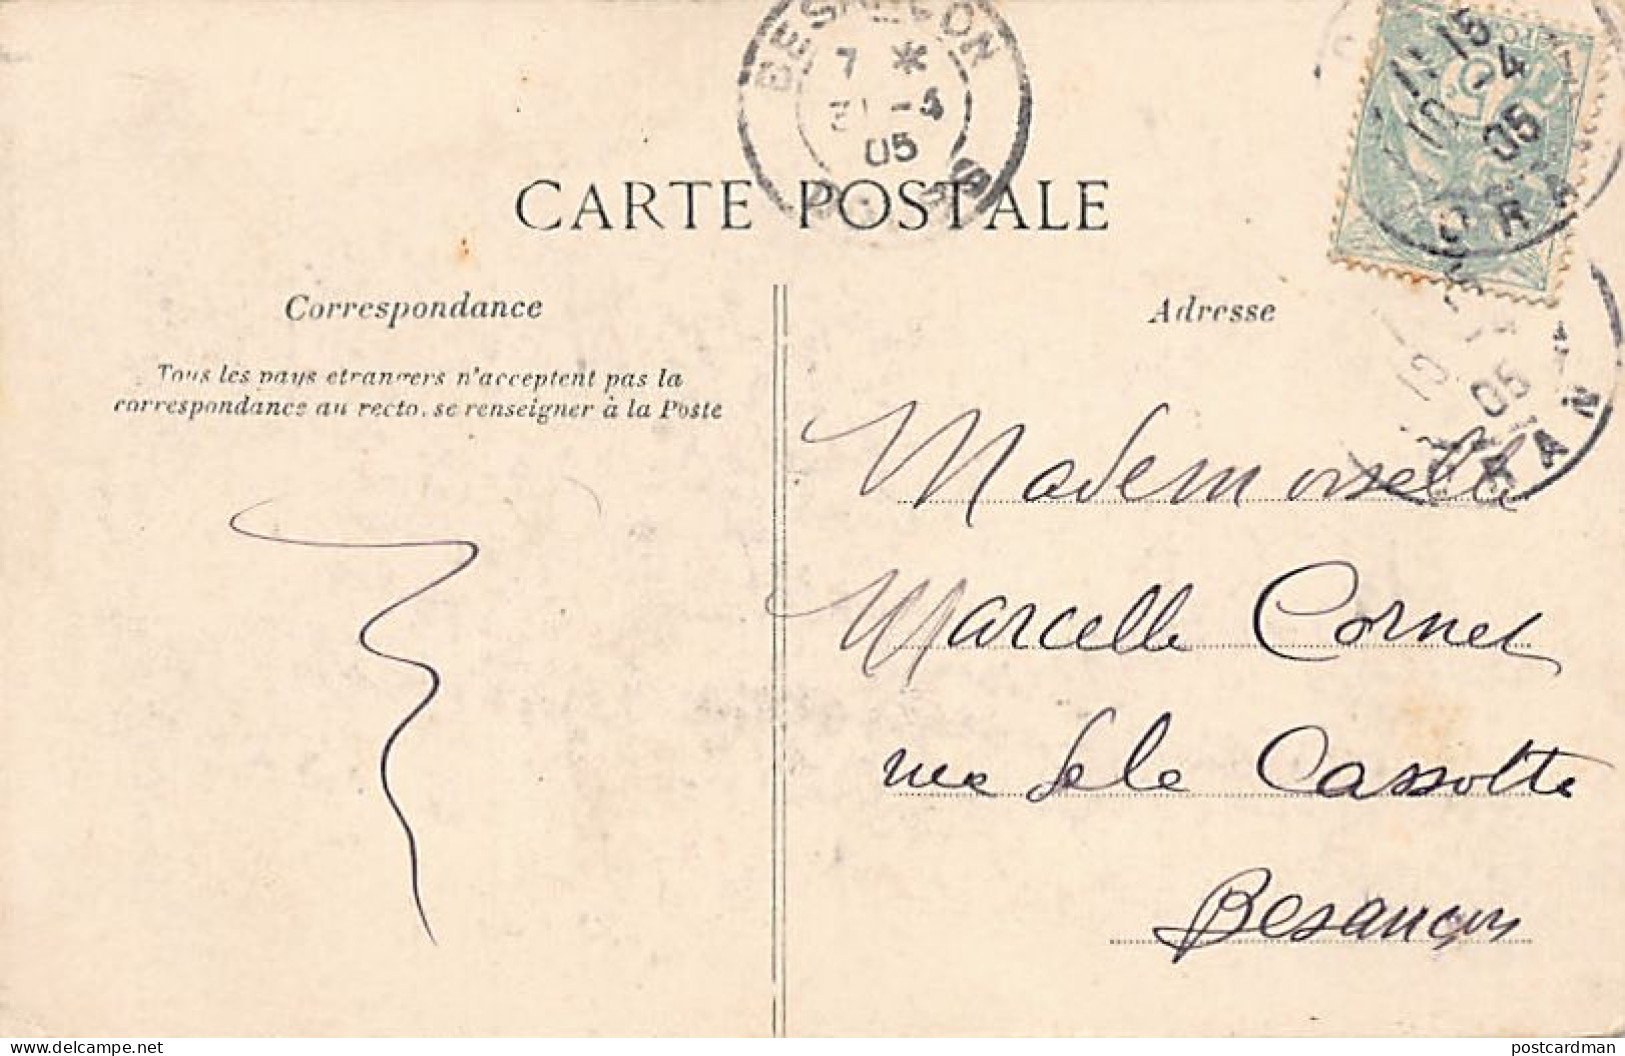 BESANÇON
7 *
31 -5
05
15
-4
05
ORA
CARTE POSTALE
Correspondance
Adresse
Tous les pays etrangers n'acceptent pas la
correspondance au recto, se renseigner à la Poste
05
RAN
Mademoiselle
Marcelle Cornet
rue de la Cassotte
Besançon
delcampe.net
postcardman